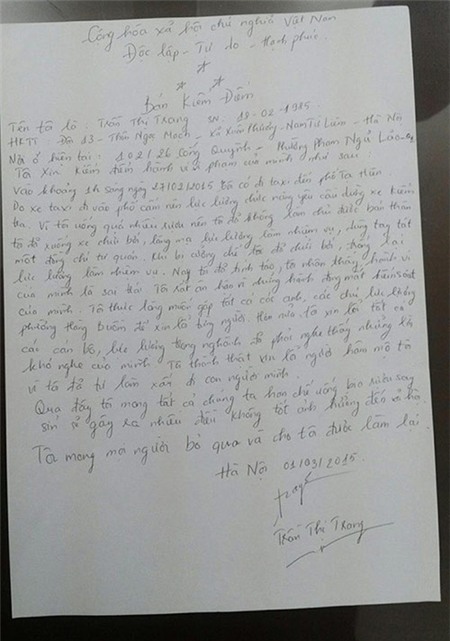 Cộng hòa xã hội chủ nghĩa Việt Nam
Độc lập - Tự do - Hạnh phúc
Bản Kiểm Điểm
Tên tôi là: Trần Thị Trang sn: 19-02-1985.
HKTT Đội 13 - Thôn Ngọc Mạch - Xã Xuân Phương - Nam Từ Liêm - Hà Nội
Nơi ở hiện tại: 102/26 Cống Quỳnh - Phường Phạm Ngũ Lão
Tôi xin kiểm điểm hành vi vi phạm của mình như sau:
Vào khoảng 1h sáng ngày 27/02/2015 tôi có đi taxi đến phố Tạ Hiện
Do xe taxi đi vào phố cấm nên lực lượng chức năng yêu cầu dừng xe kiểm
tra. Vì tôi uống quá nhiều rượu nên tôi đã không làm chủ được bản thân
tôi đã xuống xe chửi bới, lăng mạ lực lượng làm nhiệm vụ, dùng tay tát
một đồng chí tự quản. Khi bị cưỡng chế tôi đã chửi bới, chống lại
lực lượng làm nhiệm vụ. Nay tôi đã tỉnh táo, tôi nhận thấy hành vi
của mình là sai trái. Tôi rất ân hận vì những hành động mất kiểm soát
của mình. Tôi thực lòng muốn gặp tất cả các anh, các chú lực lượng
phường Hàng Buồm để xin lỗi từng người. Hơn nữa tôi xin lỗi tất cả
các cán bộ, lực lượng trong nghành đã phải nghe thấy những lời
khó nghe của mình. Tôi thành thật xin lỗi người hâm mộ tôi
vì tôi đã tự làm xấu đi con người mình.
Qua đây tôi mong tất cả chúng ta hạn chế uống bia rượu say
sỉn sẽ gây ra nhiều điều không tốt ảnh hưởng đến xã hội.
Tôi mong mọi người bỏ qua và cho tôi được làm lại.
Hà Nội 01/03/2015
Trang
Trần Thị Trang